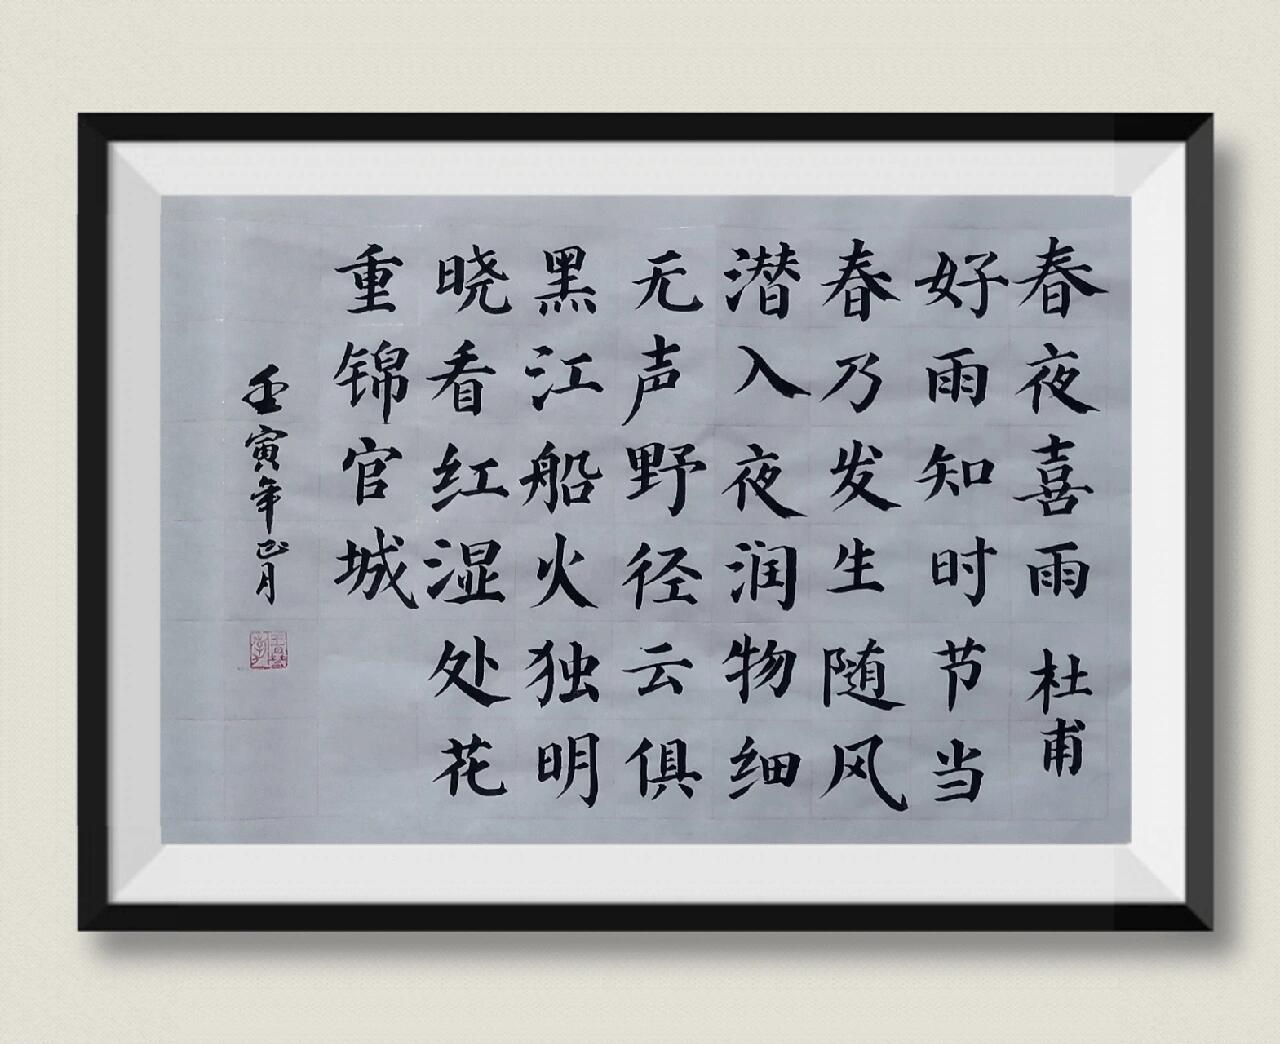 春夜喜雨 杜甫
好雨知时节当
春乃发生随风
潜入夜润物细
无声野径云俱
黑江船火独明
晓看红湿处花
重锦官城
壬寅年正月